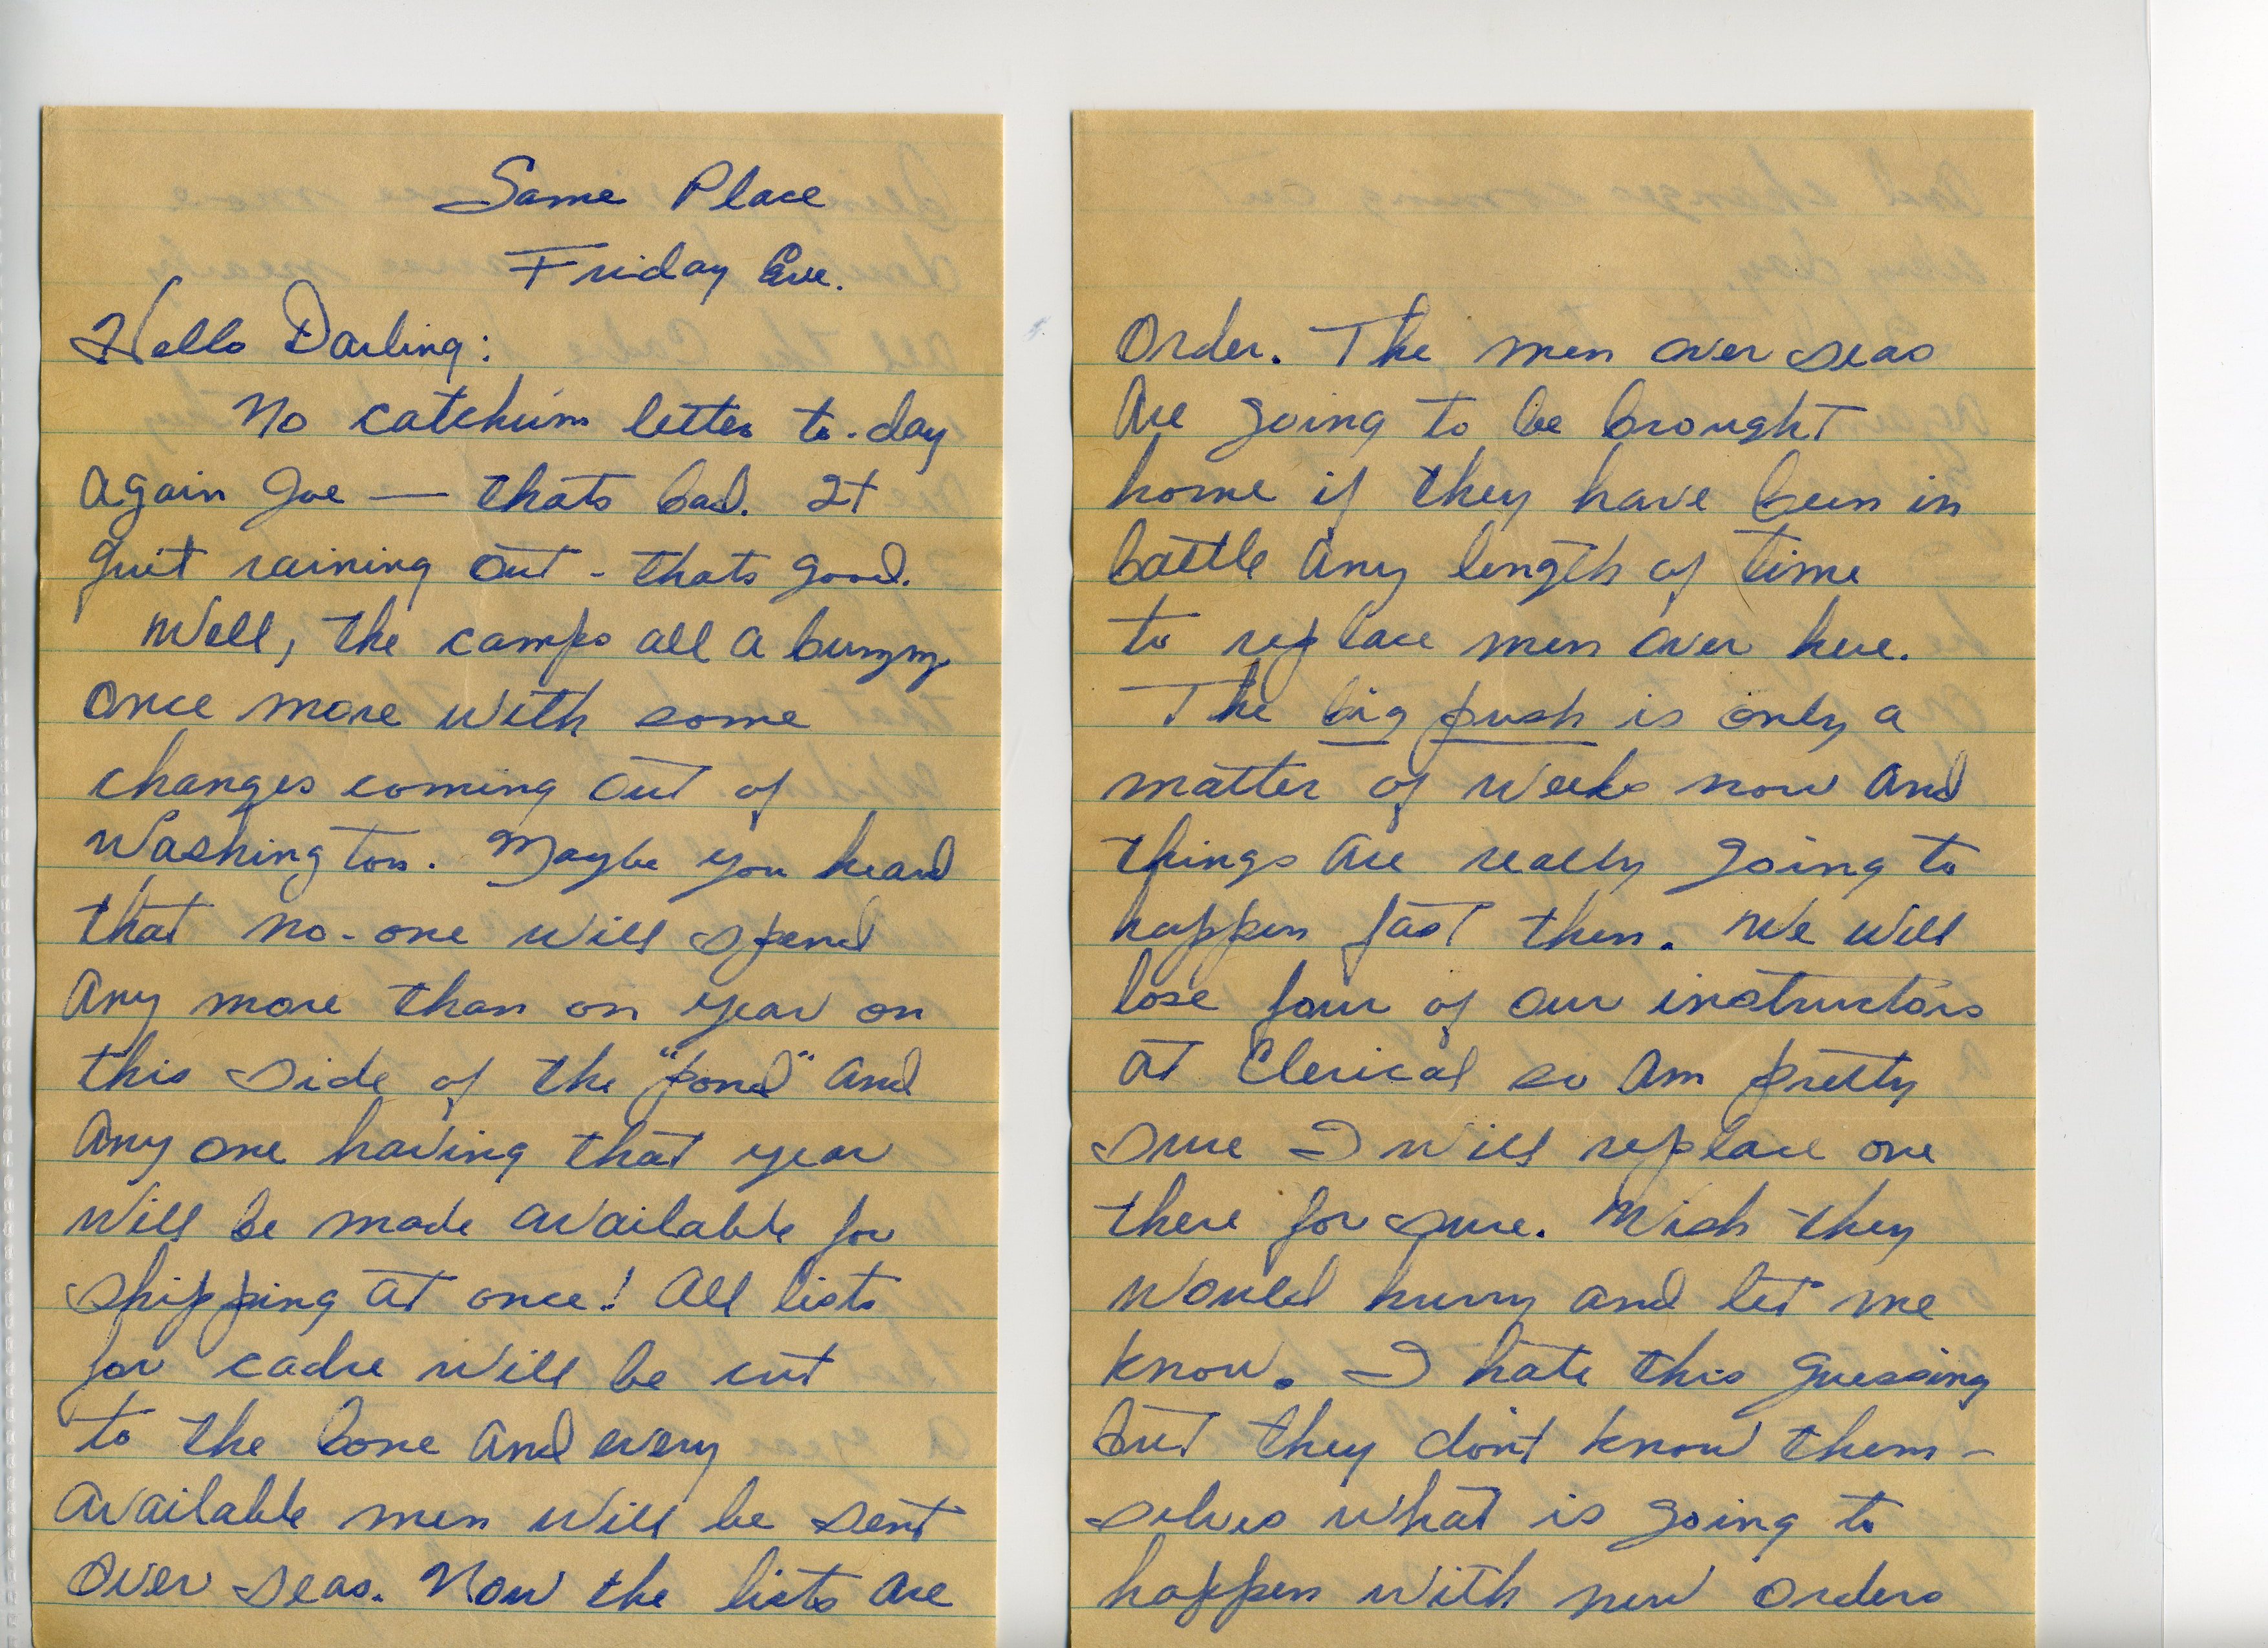 Same Place
Friday Eve.
Hello Darling:
No catchum letter to-day
again Joe — thats bad. It
quit raining out - thats good.
Well, the camps all a buzzing
once more with some
changes coming out of
Washington. Maybe you heard
that no-one will spend
any more than on year on
this side of the "pond" and
any one having that year
will be made available for
shipping at once! All lists
for cadre will be cut
to the bone and every
available men will be sent
over seas. Now the lists are
order. The men over seas
are going to be brought
home if they have been in
battle any length of time
to replace men over here.
The big push is only a
matter of weeks now and
things are really going to
happen fast then. We will
lose four of our instructors
at Clerical so am pretty
sure I will replace one
there for sure. Wish they
would hurry and let me
know. I hate this guessing
but they don't know them-
selves what is going to
happen with new orders